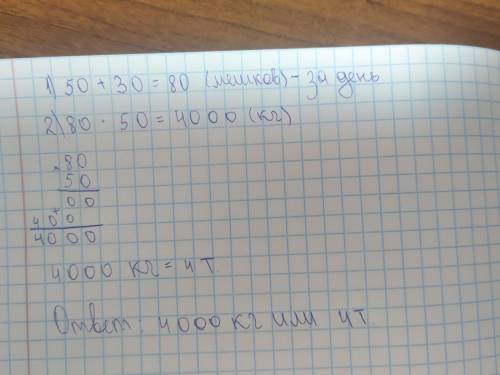 1) 50 + 30 = 80 (мешков) - за день
2) 80 · 50 = 4000 (кг)
× 80
50
00
+
400
4000
4000 кг = 4 т.
Ответ: 4000 кг или 4т.